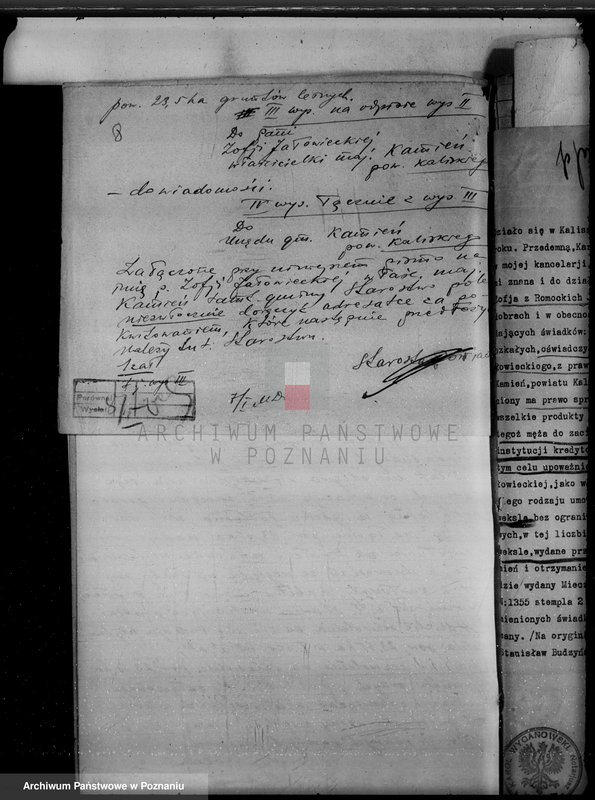 pow. 23,5 ha gruntów leśnych.
III wyp. na odprawę wyp II
8
Do Pani
Zofji Jałowieckiej
właścicielki maj. Kamień
pow. Kaliskiego
— do wiadomości.
IV wyp. łącznie z wyp III
Do
Urzędu gm. Kamień
pow. Kaliskiego
Załączone przy niniejszem pismo na
imię p. Zofji Jałowieckiej właśc. maj.
Kamień tamt. gminy Starostwo pole
niezwłocznie doręczyć adresatce za po-
kwitowaniem, które następnie przedłoży
należy tut. Starostwu.
1 zał
Starosta
Porówn
Wysłał
7/I MD
ARCHIWUM PAŃSTWOWE
W POZNANIU
Działo się w Kalis
roku. Przedemną, Kar
w mojej kancelarji
mi znana i do dzia
Zofja z Romockich
dobrach i w obecno
iających świadków:
zkałych, oświadczy
kowieckiego, z praw
Kamień, powiatu Kal
ciony ma prawo spr
wszelkie produkty
tegoż męża do zac
instytucji kredyto
tym celu upoważnio
kowieckiej, jako w
lego rodzaju umo
weksle bez ograni
wych, w tej liczbi
weksle, wydane prz
mień i otrzymanie
dzie wydany Miecz
N:1355 stempla 2
mienionych świadk
wany. /Na orygin
Stanisław Budzyń
KAROL WYGANOWSKI
Archiwum Państwowe w Poznaniu